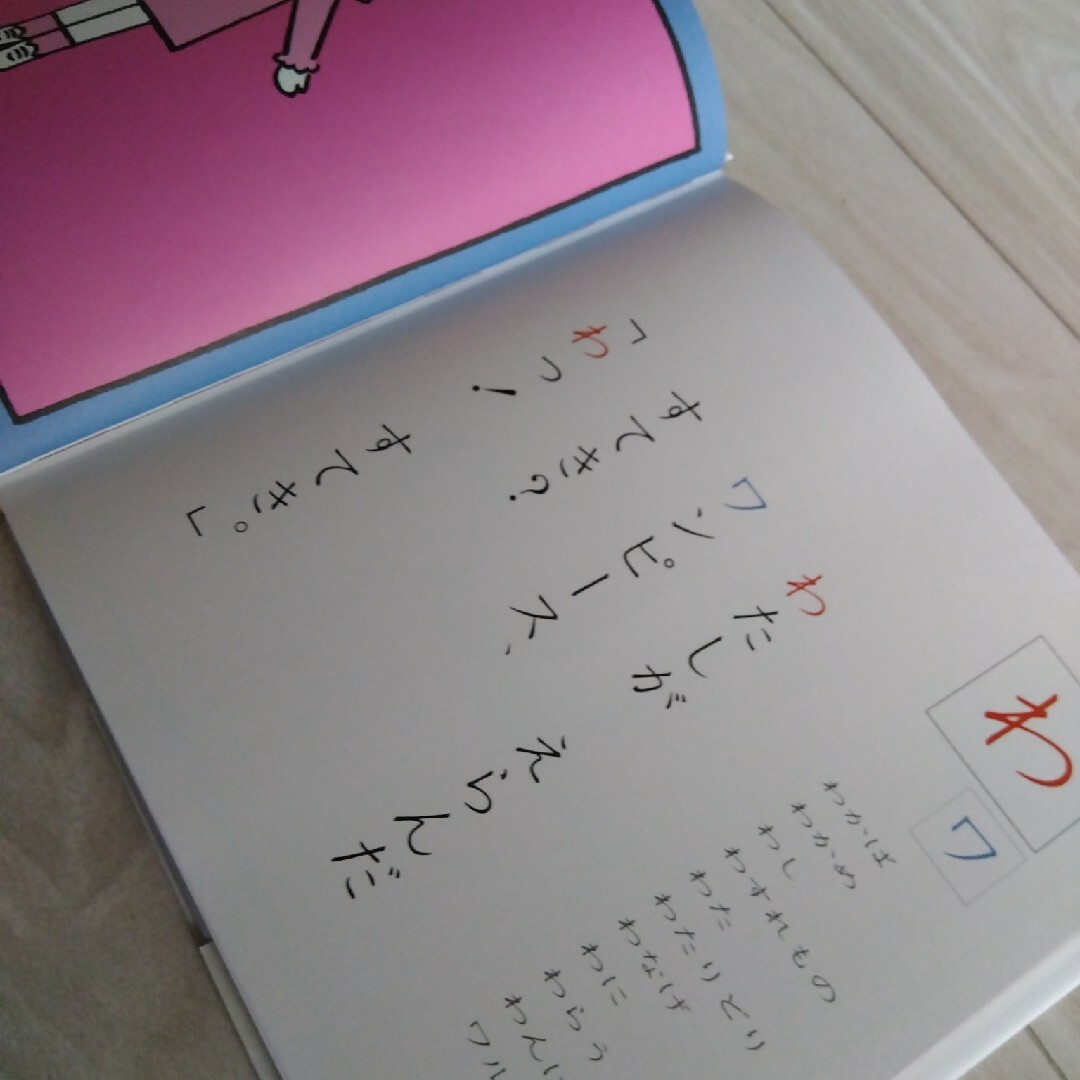 わ
ワ
わたしが えらんだ
ワンピース、
すてき?
「わっ! すてき。」
わかば
わかめ
わし
わすれもの
わた
わたりどり
わなげ
わに
わらう